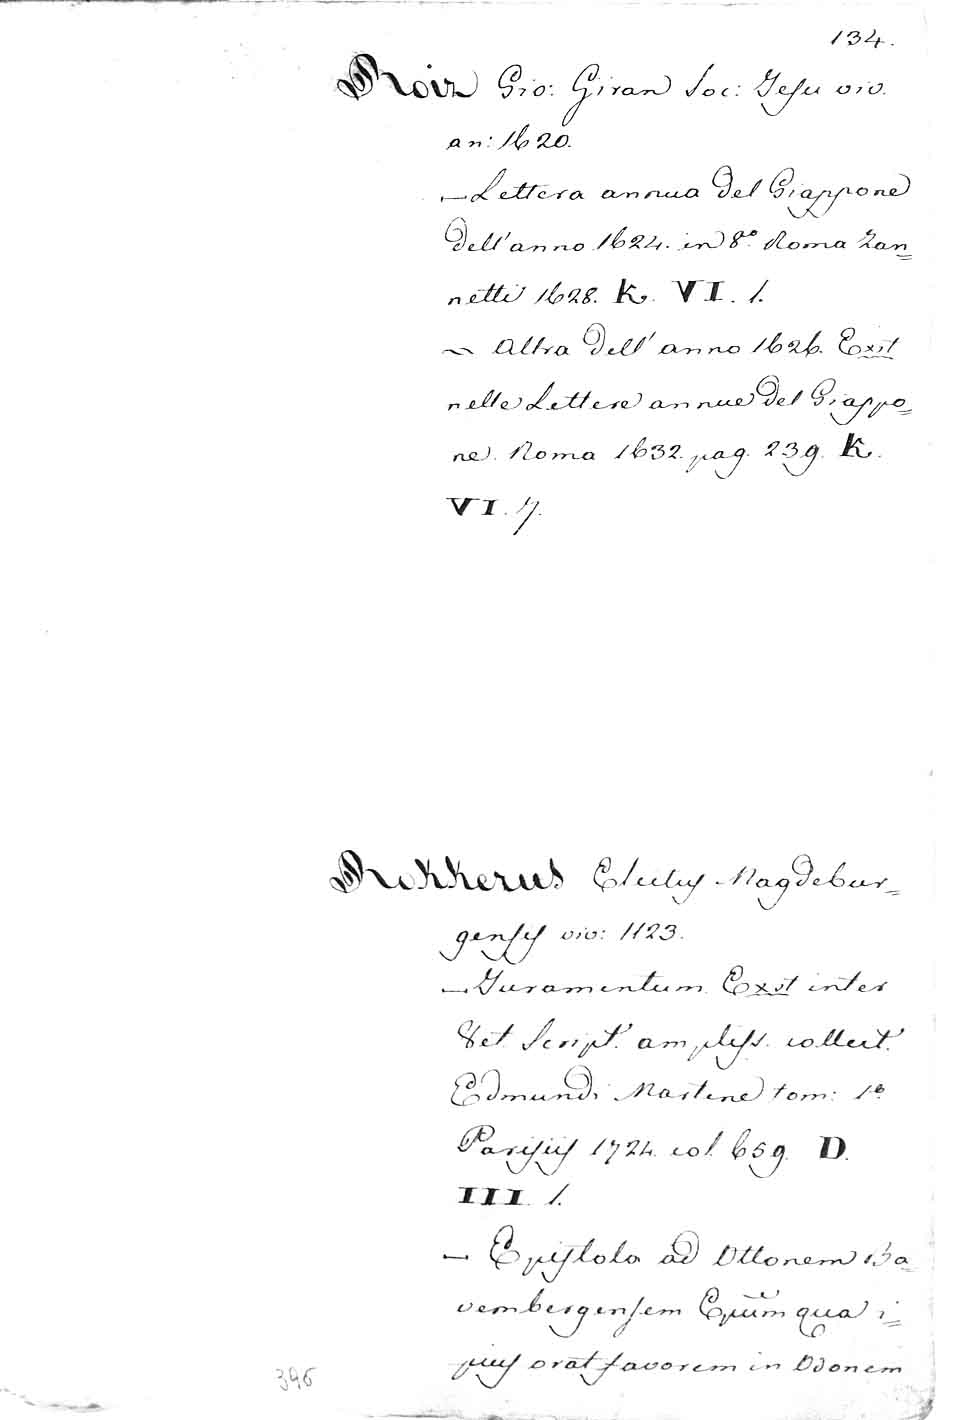 134.
Roiz Gio: Giran Soc: Jesu viv.
an: 1620.
— Lettera annua del Giappone
dell'anno 1624. in 8.° Roma Zan=
netti 1628. K. VI. 1.
— Altra dell'anno 1626. Exit
nelle Lettere annue del Giappo=
ne. Roma 1632. pag. 239. K.
VI. 7.
Rokkerus Electus Magdebur=
gensis viv: 1123.
— Juramentum. Exst inter
Vet. Script. ampliss. collect.
Edmundi Martene tom: 1°
Parisiis 1724. col. 659. D.
III. 1.
— Epistola ad Ottonem Ba=
vembergensem Epũm qua i=
psius orat favorem in Odonem
396